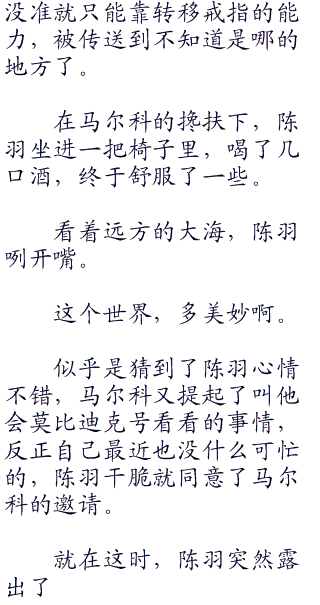 没准就只能靠转移戒指的能
力，被传送到不知道是哪的
地方了。
在马尔科的搀扶下，陈
羽坐进一把椅子里，喝了几
口酒，终于舒服了一些。
看着远方的大海，陈羽
咧开嘴。
这个世界，多美妙啊。
似乎是猜到了陈羽心情
不错，马尔科又提起了叫他
会莫比迪克号看看的事情，
反正自己最近也没什么可忙
的，陈羽干脆就同意了马尔
科的邀请。
就在这时，陈羽突然露
出了